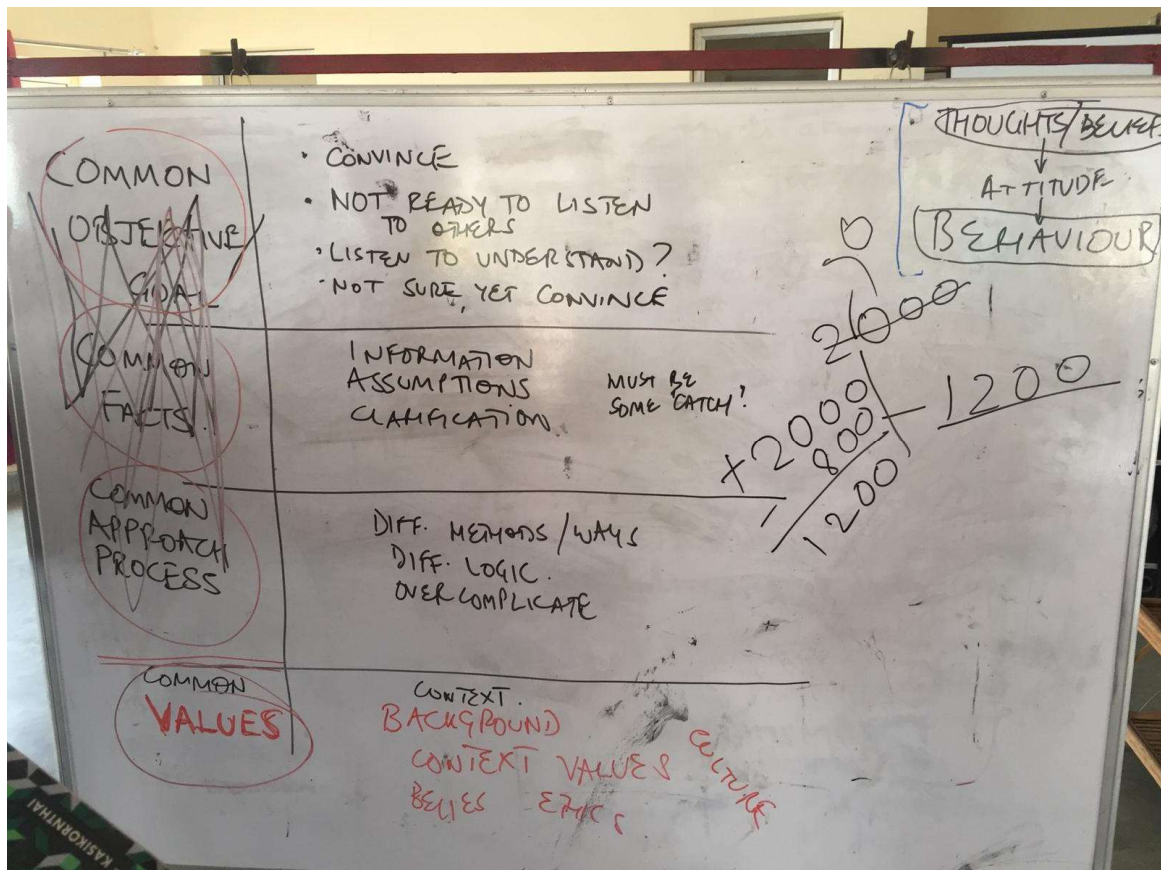 COMMON
OBJECTIVE/
GOAL
• CONVINCE
• NOT READY TO LISTEN
TO OTHERS
• LISTEN TO UNDERSTAND?
• NOT SURE, YET CONVINCE
COMMON
FACTS.
INFORMATION
ASSUMPTIONS
CLARIFICATION
MUST BE
SOME 'CATCH'!
COMMON
APPROACH
PROCESS
DIFF. METHODS/WAYS
DIFF. LOGIC.
OVER COMPLICATE
COMMON
VALUES
CONTEXT.
BACKGROUND
CONTEXT VALUES
CULTURE
BELIES ETHICS
THOUGHTS/BELIEFS
ATTITUDE
BEHAVIOUR
2000
+2000
- 800
1200
1200
KASIKORNTHAI